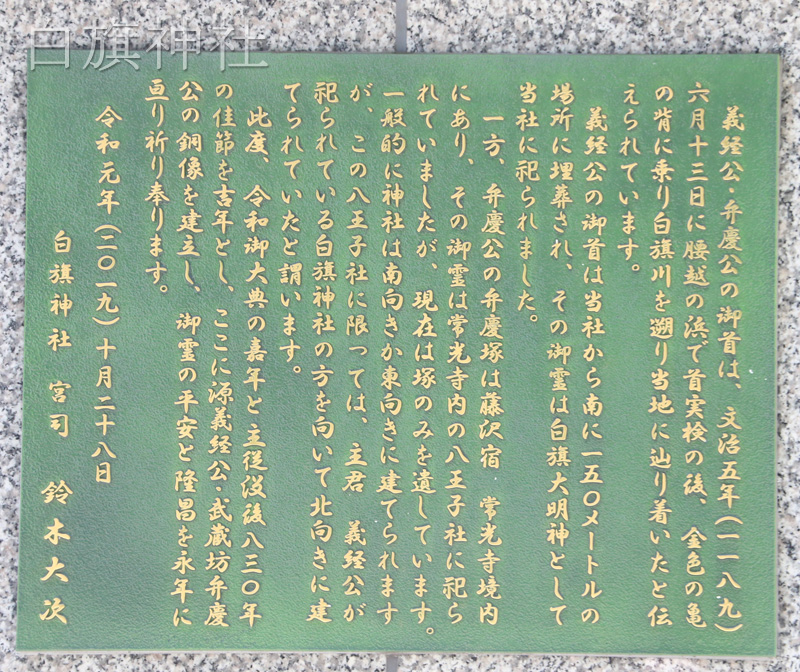 白旗神社
義経公・弁慶公の御首は、文治五年(一一八九)
六月十三日に腰越の浜で首実検の後、金色の亀
の背に乗り白旗川を遡り当地に辿り着いたと伝
えられています。
義経公の御首は当社から南に一五〇メートルの
場所に埋葬され、その御霊は白旗大明神として
当社に祀られました。
一方、弁慶公の弁慶塚は藤沢宿 常光寺境内
にあり、その御霊は常光寺内の八王子社に祀ら
れていましたが、現在は塚のみを遺しています。
一般的に神社は南向きか東向きに建てられます
が、この八王子社に限っては、主君 義経公が
祀られている白旗神社の方を向いて北向きに建
てられていたと謂います。
此度、令和御大典の嘉年と主従没後八三〇年
の佳節を吉年とし、ここに源義経公・武蔵坊弁慶
公の銅像を建立し、御霊の平安と隆昌を永年に
亘り祈り奉ります。
令和元年(二〇一九)十月二十八日
白旗神社 宮司 鈴木大次